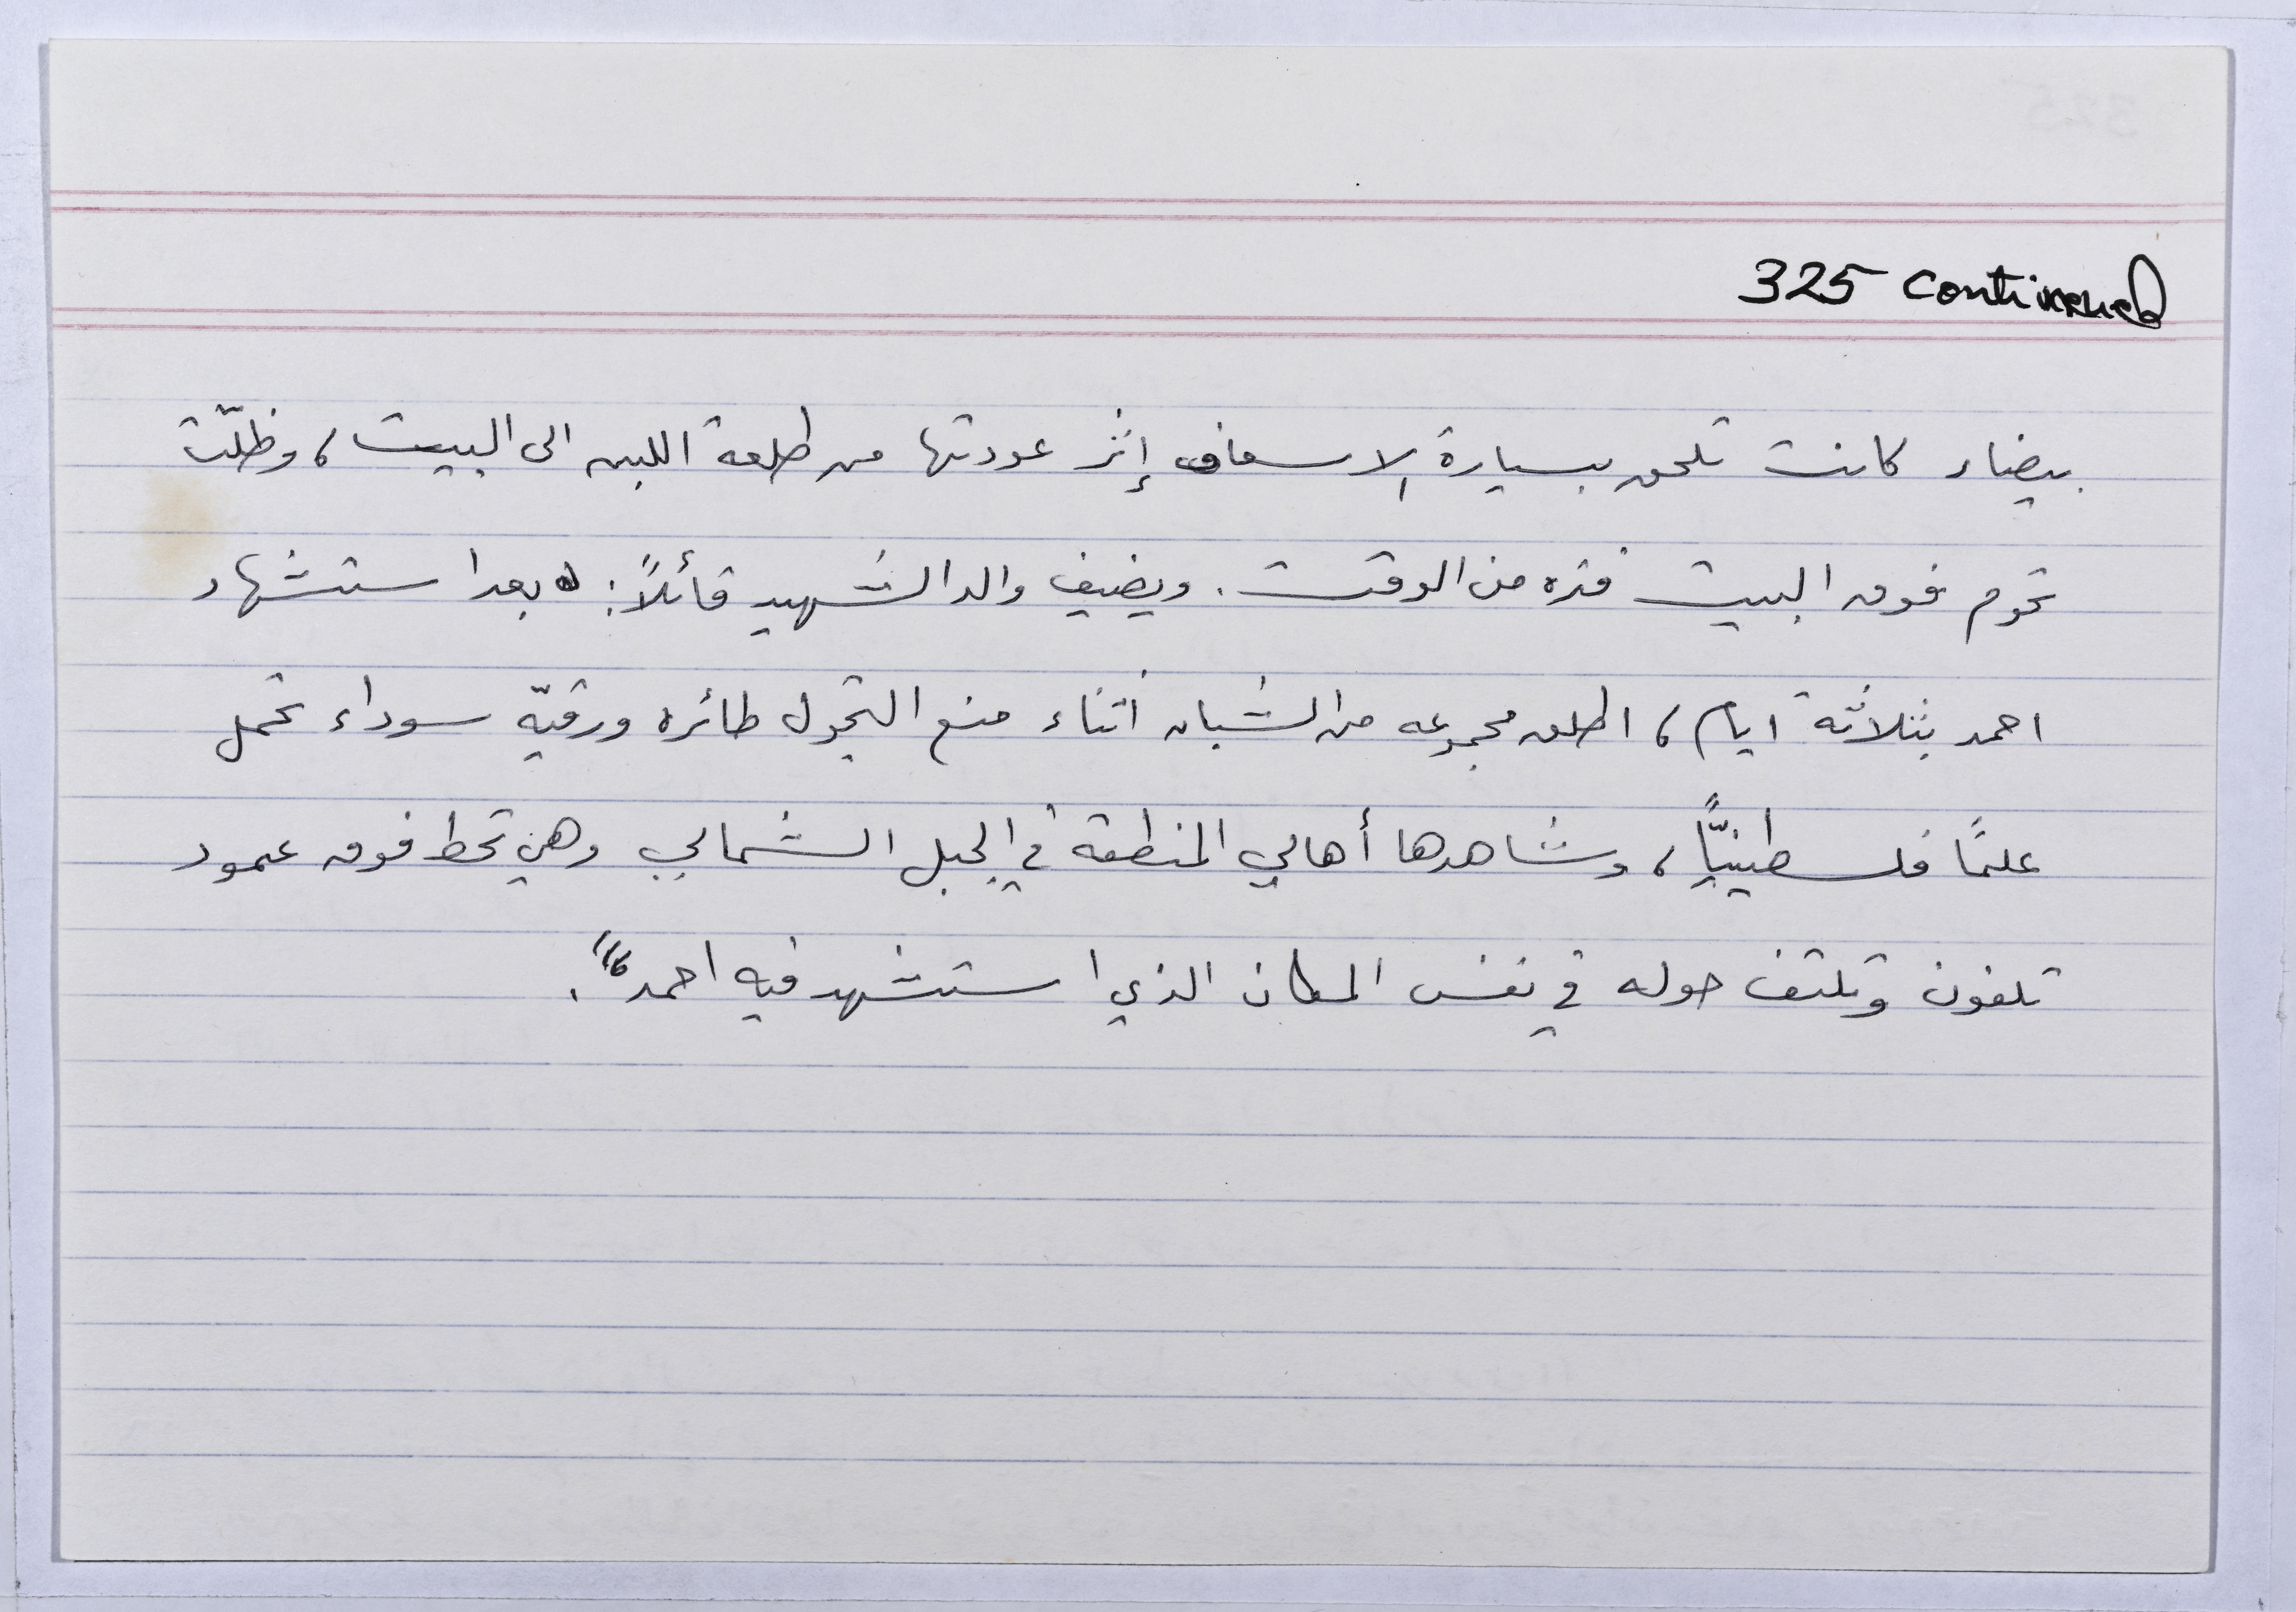 325 continued
بيضاء كانت تلحق بسيارة الاسعاف إثر عودتها من طلعة اللبن الى البيت، وظلّت
تحوم فوق البيت فتره من الوقت. ويضيف والد الشهيد قائلاً: "بعد استشهاد
احمد بثلاثة ايام، اطلق مجموعه من الشبان أثناء منع التجول طائره ورقيّه سوداء تحمل
علمًا فلسطينيًّا، وشاهدها أهالي المنطقة في الجبل الشمالي وهي تحط فوق عمود
تلفون وتلتف حوله في نفس المكان الذي استشهد فيه احمد".